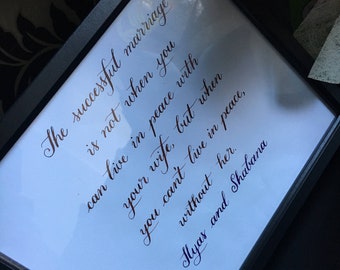 The successful marriage
is not when you
can live in peace with
your wife, but when
you can't live in peace,
without her.
Ilyas and Shabana